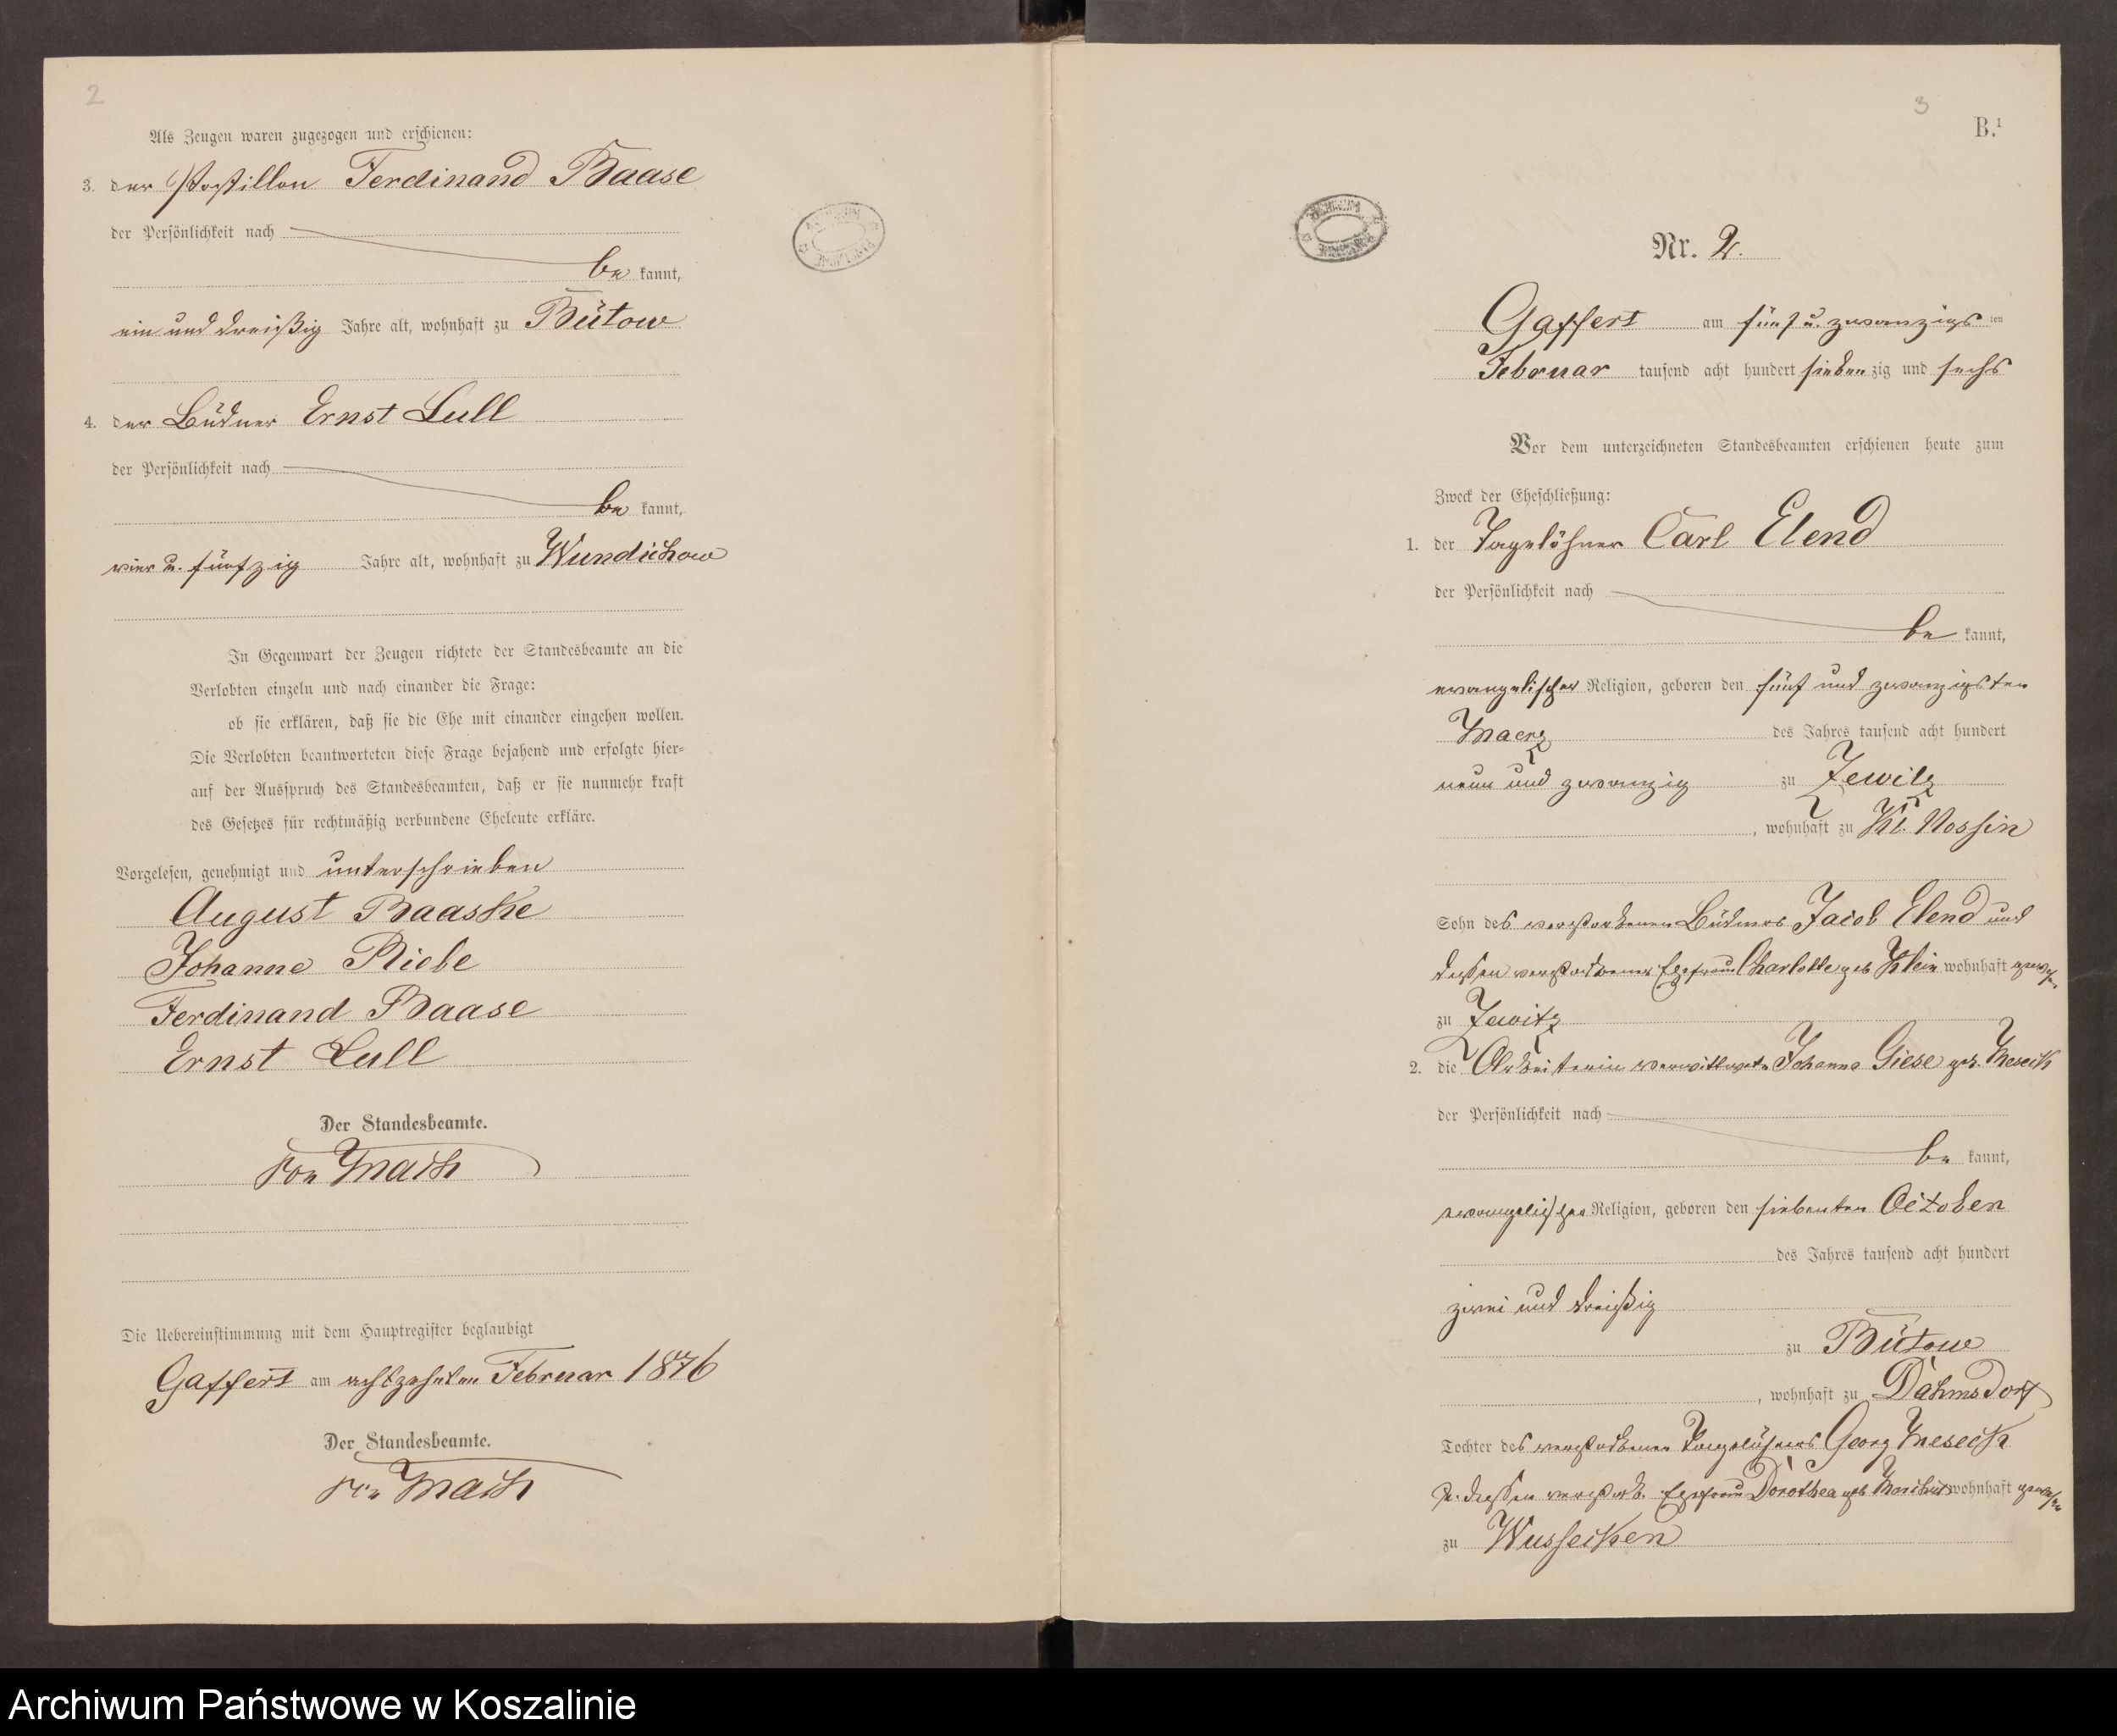 2
Als Zeugen waren zugezogen und erschienen:
3. der Postillon Ferdinand Baase
der Persönlichkeit nach
be kannt,
ein und dreißig Jahre alt, wohnhaft zu Bütow
4. der Büdner Ernst Lull
der Persönlichkeit nach
be kannt,
vier u. fünfzig Jahre alt, wohnhaft zu Wundichow
In Gegenwart der Zeugen richtete der Standesbeamte an die
Verlobten einzeln und nach einander die Frage:
ob sie erklären, daß sie die Ehe mit einander eingehen wollen.
Die Verlobten beantworteten diese Frage bejahend und erfolgte hier=
auf der Ausspruch des Standesbeamten, daß er sie nunmehr kraft
des Gesetzes für rechtmäßig verbundene Eheleute erkläre.
Vorgelesen, genehmigt und unterschrieben
August Baaske
Johanne Riebe
Ferdinand Baase
Ernst Lull
Der Standesbeamte.
Die Uebereinstimmung mit dem Hauptregister beglaubigt
Gaffert am achtzehnten Februar 1876
Der Standesbeamte.
3
B.¹
Nr. 2.
Gaffert am fünf u. zwanzigs ten
Februar tausend acht hundert sieben zig und sechs
Vor dem unterzeichneten Standesbeamten erschienen heute zum
Zweck der Eheschließung:
1. der Tagelöhner Carl Elend
der Persönlichkeit nach
be kannt,
evangelischer Religion, geboren den fünf und zwanzigsten
Maerz des Jahres tausend acht hundert
neun und zwanzig zu Jewitz
, wohnhaft zu Kl. Nossin
Sohn des verstorbenen Büdners Jacob Elend und
dessen verstorbenen Ehefrau Charlotte geb Klein wohnhaft gewes.
zu Jewitz
2. die Arbeiterin verwittwete Johanne Giese geb. Meseck
der Persönlichkeit nach
be kannt,
evangelischer Religion, geboren den siebenten October
des Jahres tausend acht hundert
zwei und dreißig
zu Bütow
, wohnhaft zu Dähmsdorf
Tochter des verstorbenen Tagelöhners Georg Meseck
u. dessen verstorb. Ehefrau Dorothea geb wohnhaft gewesen
zu Wusseken
Archiwum Państwowe w Koszalinie